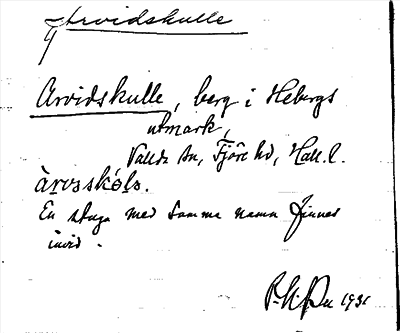 Arvidskulle
Arvidskulle, berg i Hebergs
utmark,
Vallda sn, Fjäre hd, Hall. l.
En stuga med samma namn finnes
invid.
1931